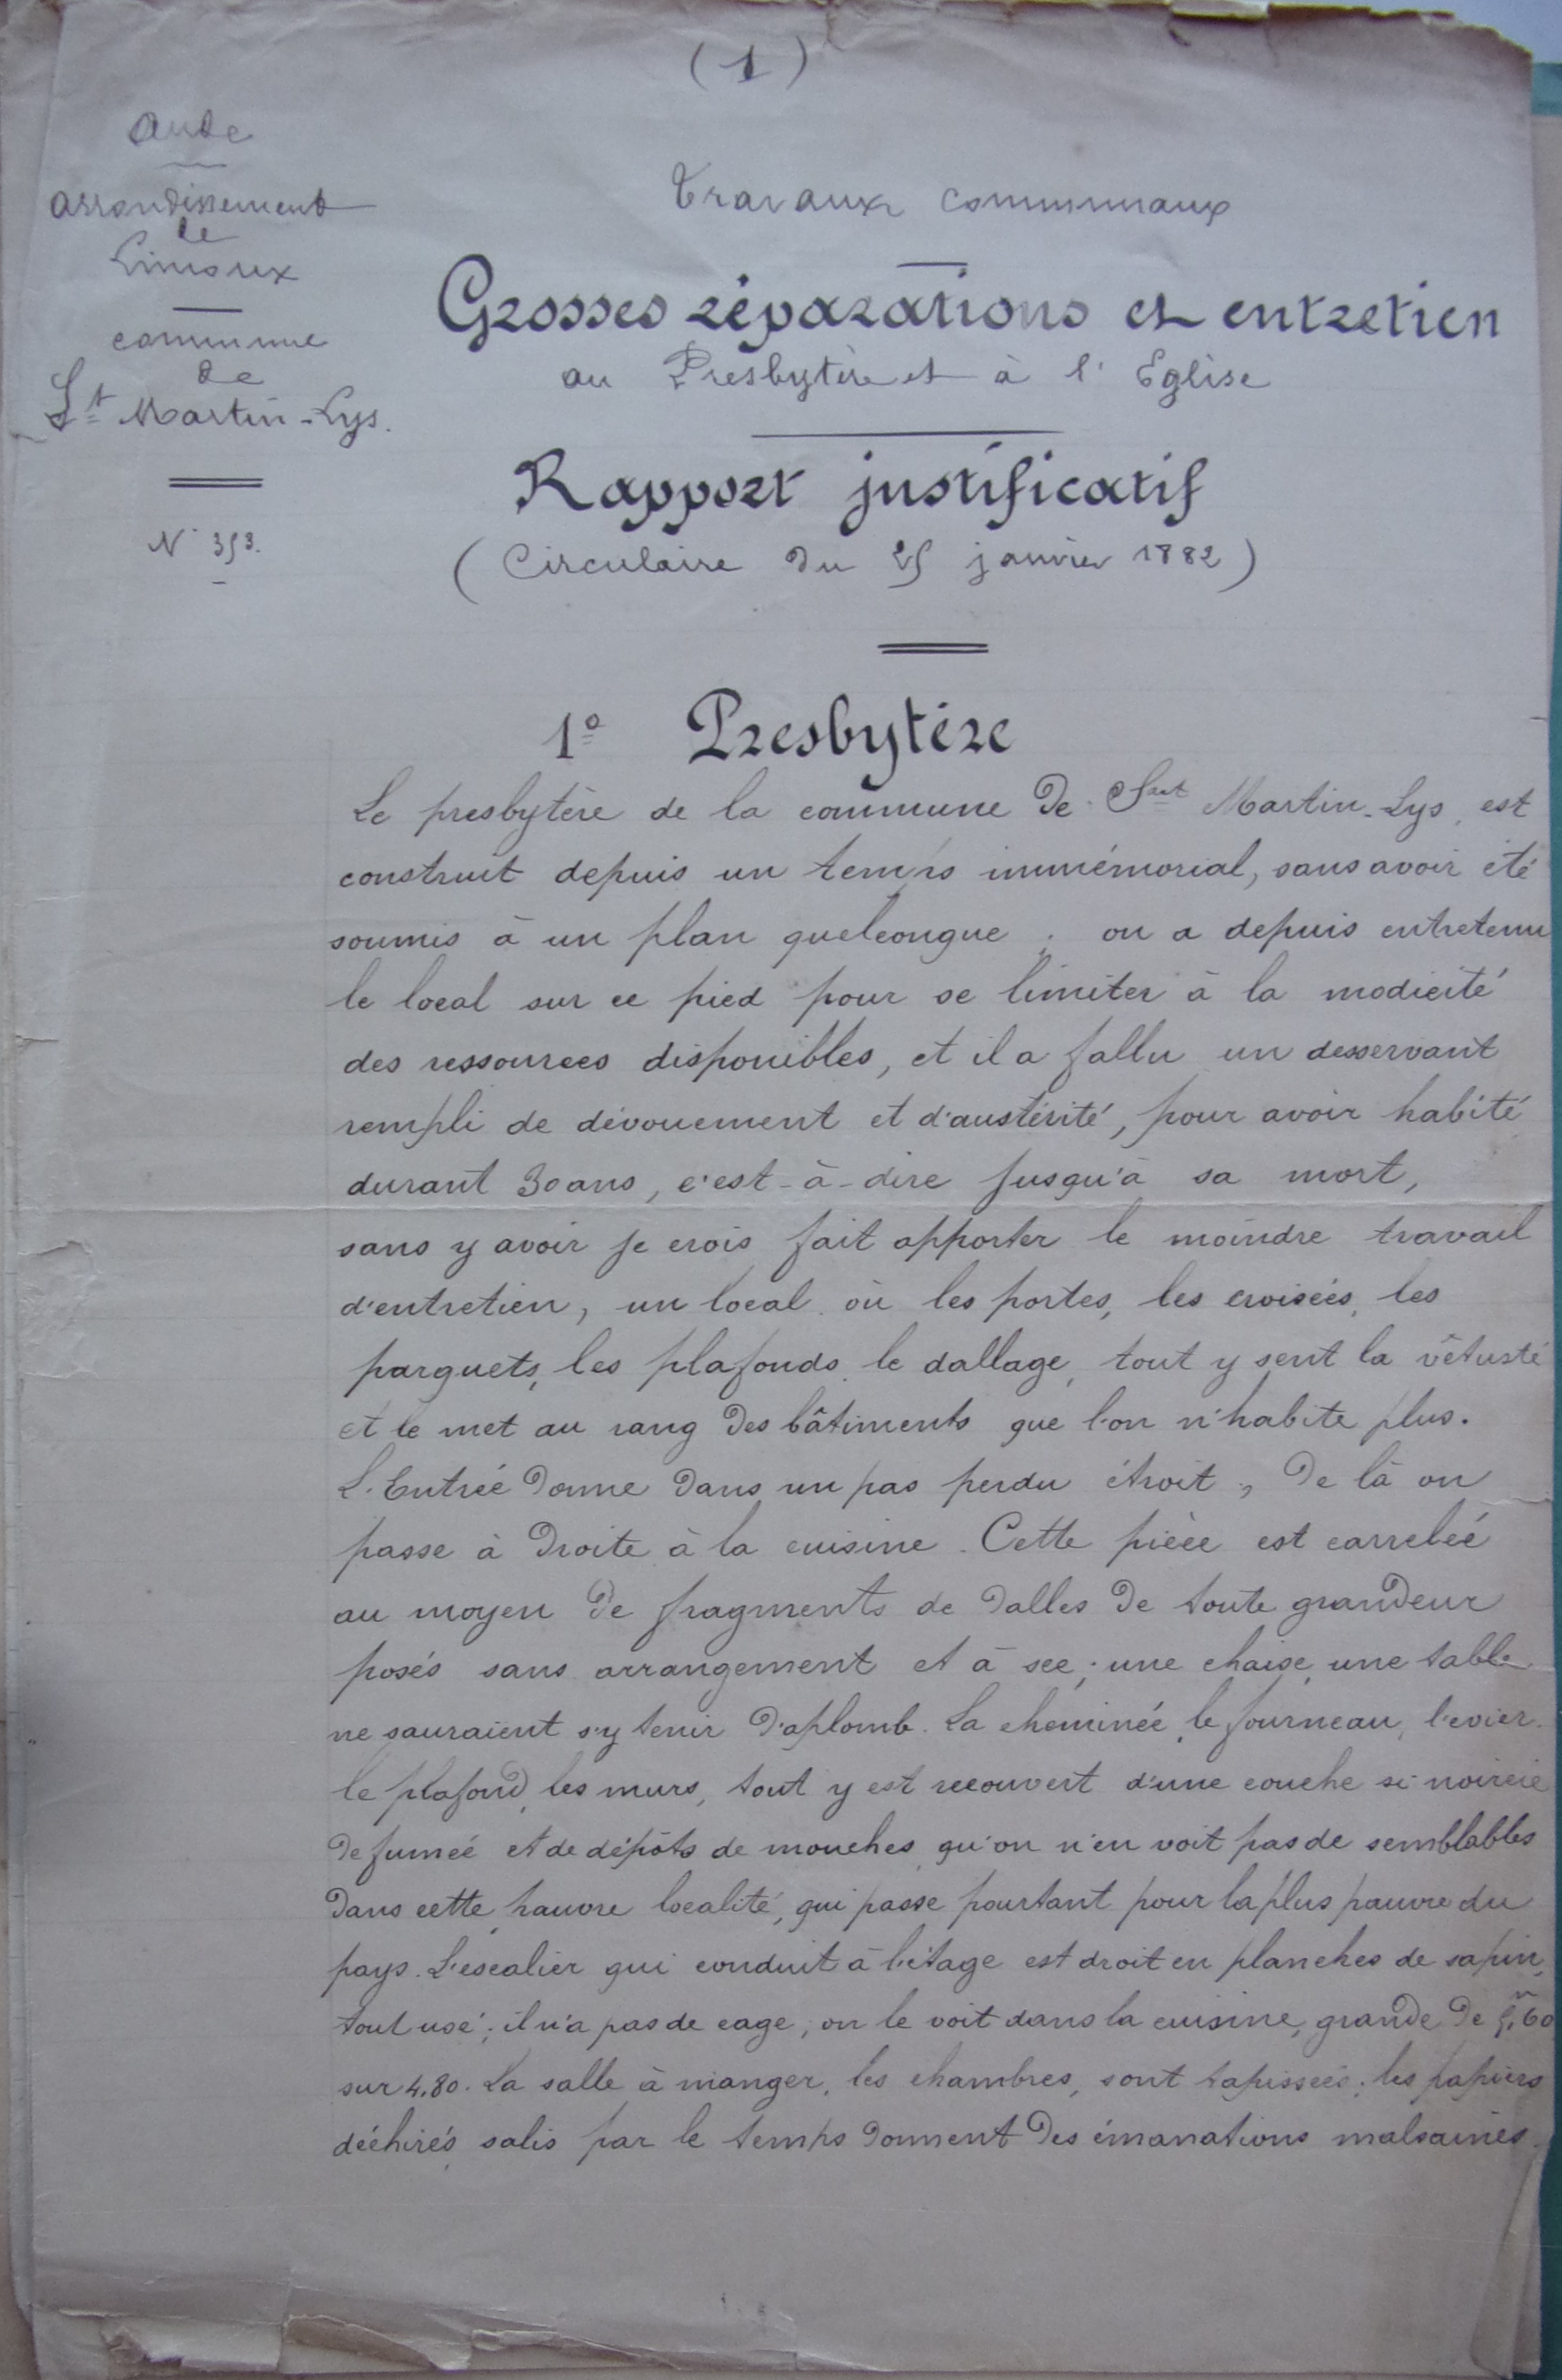 (1)
Aude
arrondissement
de
Limoux
commune
de
St Martin-Lys.
N° 353.
Travaux communaux
Grosses réparations et entretien
au Presbytère et à l'Eglise
Rapport justificatif
(Circulaire du 25 janvier 1882)
1° Presbytère
Le presbytère de la commune de Saint Martin-Lys, est
construit depuis un temps immémorial, sans avoir été
soumis à un plan quelconque; on a depuis entretenu
le local sur ce pied pour se limiter à la modicité
des ressources disponibles, et il a fallu un desservant
rempli de dévouement et d'austérité, pour avoir habité
durant 30 ans, c'est-à-dire jusqu'à sa mort,
sans y avoir je crois fait apporter le moindre travail
d'entretien, un local où les portes, les croisées, les
parquets, les plafonds, le dallage, tout y sent la vétusté
et le met au rang des bâtiments que l'on n'habite plus.
L'Entrée donne dans un pas perdu étroit, de là on
passe à droite à la cuisine. Cette pièce est carrelée
au moyen de fragments de dalles de toute grandeur
posés sans arrangement et à sec; une chaise, une table
ne sauraient s'y tenir d'aplomb. La cheminée, le fourneau, l'evier
le plafond, les murs, tout y est recouvert d'une couche si noircie
de fumée et de dépôts de mouches, qu'on n'en voit pas de semblables
dans cette pauvre localité, qui passe pourtant pour la plus pauvre du
pays. L'escalier qui conduit à l'étage est droit en planches de sapin,
tout usé; il n'a pas de cage, on le voit dans la cuisine, grande de 5m,60
sur 4,80. La salle à manger, les chambres, sont tapissées; les papiers
déchirés, salis par le temps donnent des émanations malsaines.